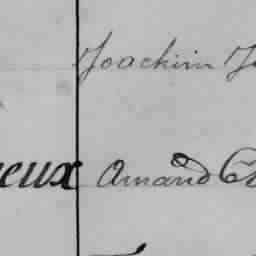 Joachim J
eux Amand C